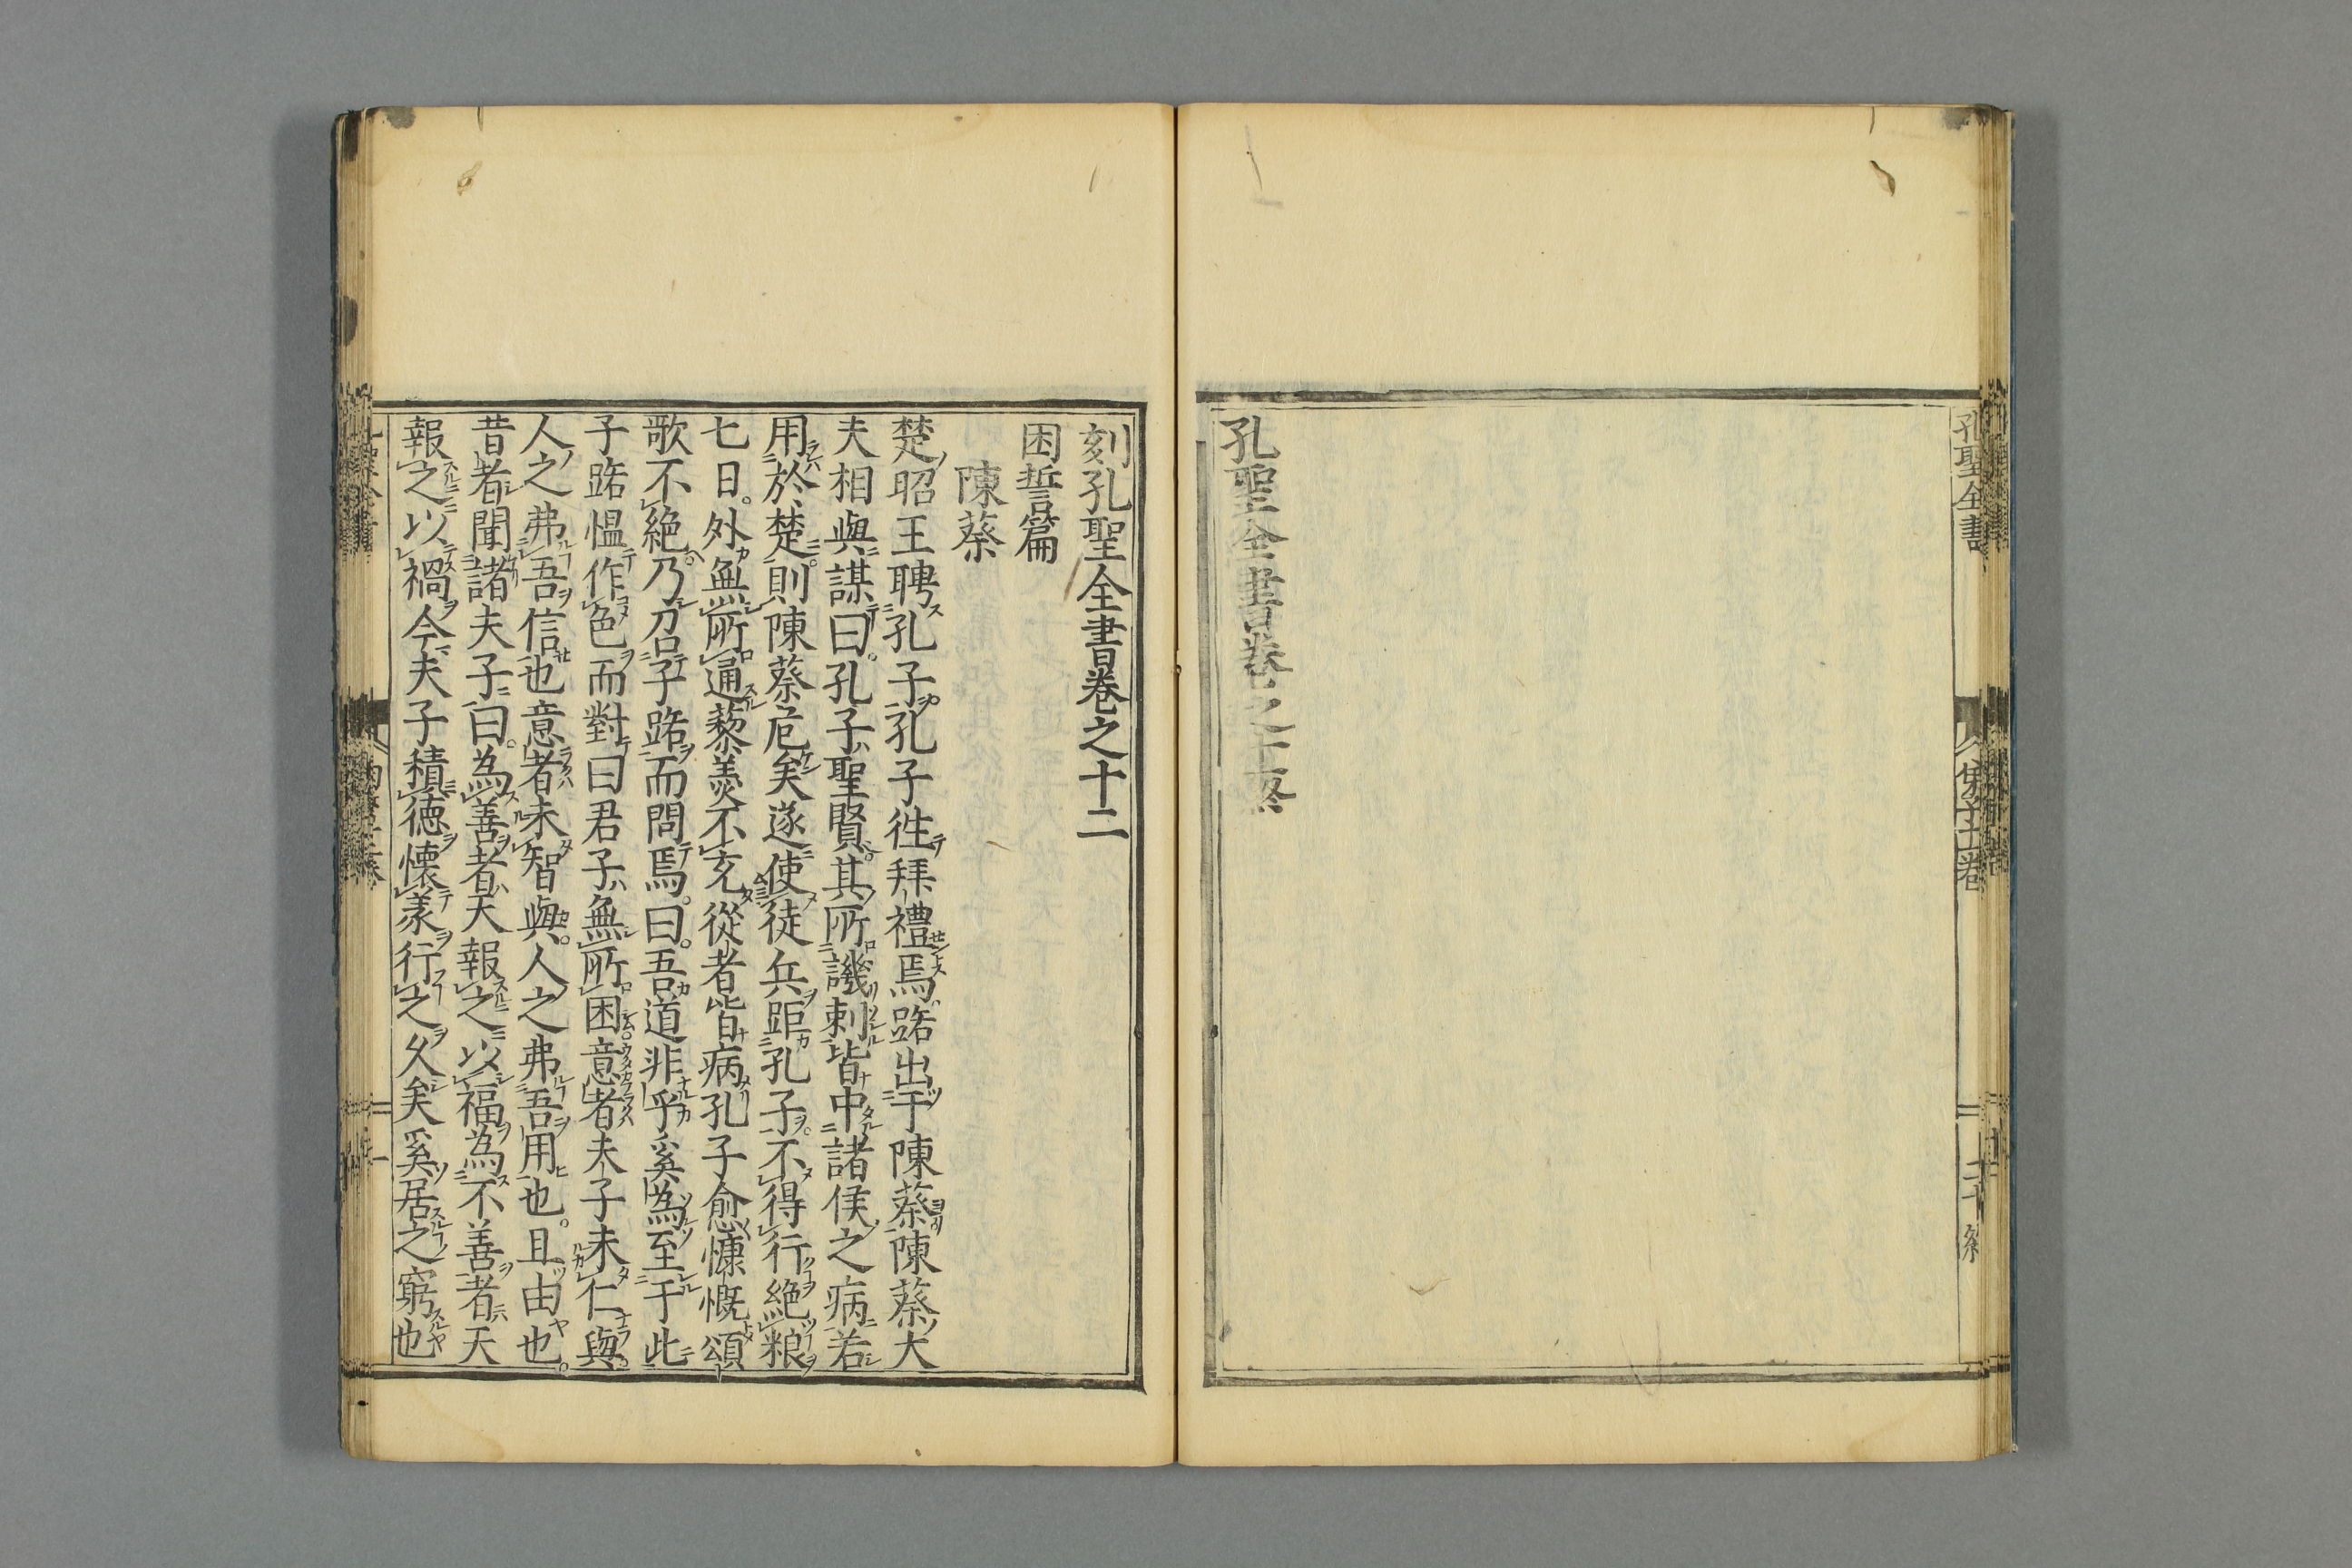 孔聖全書
孔聖全書卷之十一終
刻孔聖全書卷之十二
困誓篇
陳蔡
楚昭王聘孔子孔子徃拜禮焉路出于陳蔡陳蔡大
夫相與謀曰孔子聖賢其所譏刺皆中諸侯之病若
用於楚則陳蔡危矣遂使徒兵距孔子不得行絶粮
七日外無所通藜羹不充從者皆病孔子愈慷慨頌
歌不絶乃召子路而問焉曰吾道非乎奚為至于此
子路慍作色而對曰君子無所困意者夫子未仁與
人之弗吾信也意者未智與人之弗吾用也且由也
昔者聞諸夫子曰為善者天報之以福為不善者天
報之以禍今夫子積德懷義行之久矣奚居之窮也